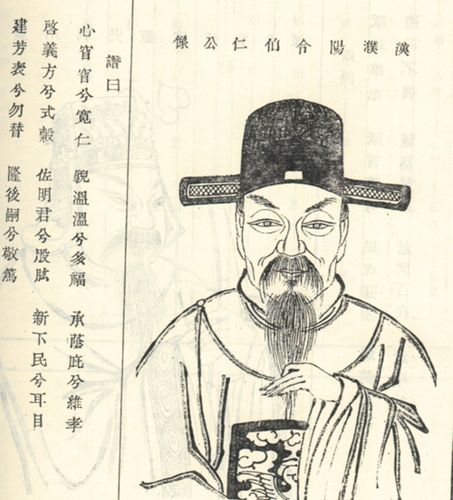 漢濮陽令伯仁公像
讚曰
心窅窅兮寬仁 貌溫溫兮多福 承蔭庇兮維孝
啓義方兮式穀 佐明君兮股肱 新下民兮耳目
建芳表兮勿替 隆後嗣兮敬篤